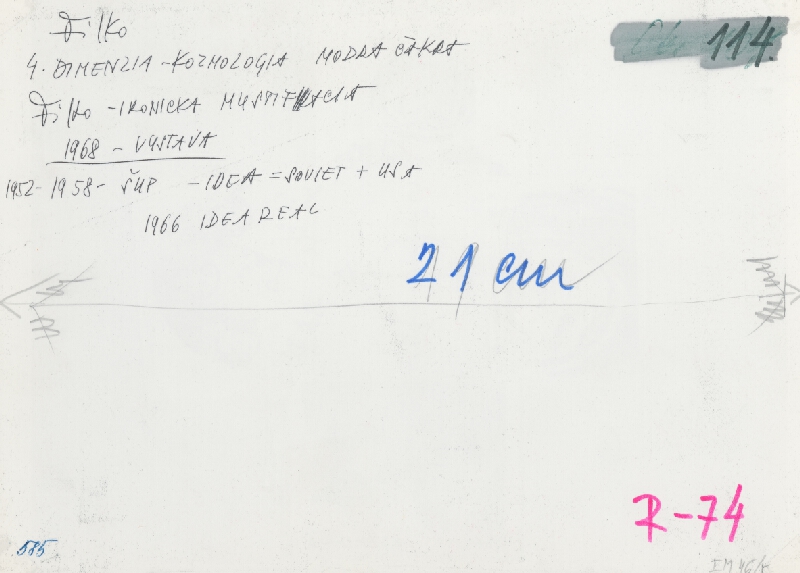 Filko
4. DIMENZIA - KOZMOLOGIA MODRA ČAKRA
Filko - IRONICKA MYSTIFIKACIA
1968 - VYSTAVA
1952 - 1958 - ŠUP - IDEA = SOVIET + USA
1966 IDEA REAL
114.
21 cm
R-74
585